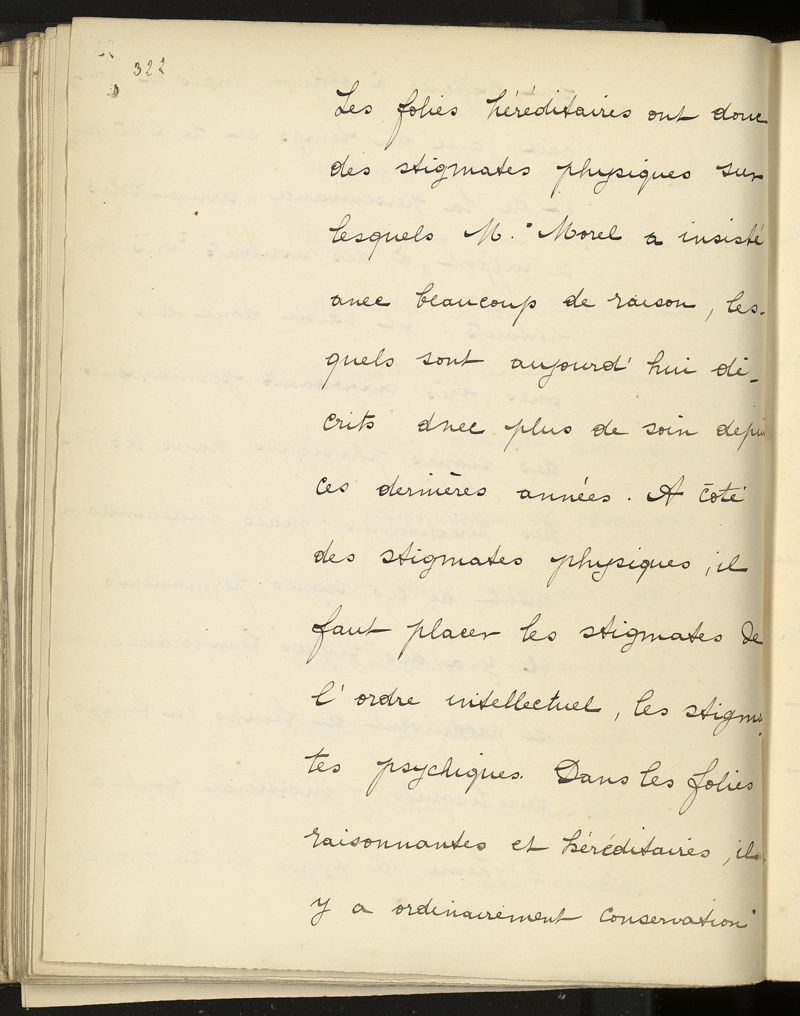 322
Les folies héréditaires ont donc
des stigmates physiques sur
lesquels M. Morel a insisté
avec beaucoup de raison, les-
quels sont aujourd'hui dé-
crits avec plus de soin depuis
ces dernières années. A côté
des stigmates physiques, il
faut placer les stigmates de
l'ordre intellectuel, les stigma-
tes psychiques. Dans les folies
raisonnantes et héréditaires, il
y a ordinairement conservation